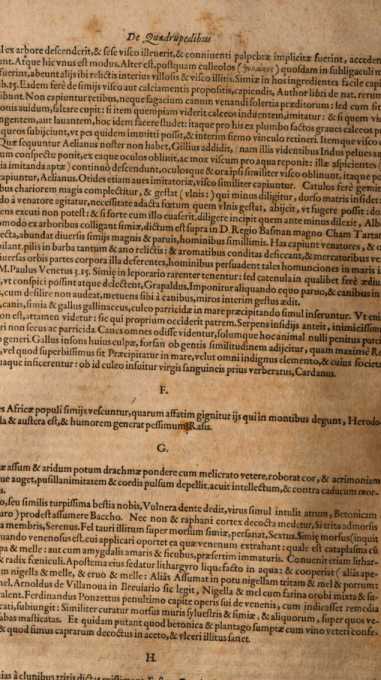 De Quadrupedibus
ex arbore descenderit, & sese visco illeuerit, & conniuenti palpebræ implicitæ fuerint, acceden
unt. Atque hic vnus est modus. Alter est, postquam culleolos quosdam in subligaculi
fuerint, abeunt alijs ibi relictis interius villosis & visco illitis. Simiæ in hos ingredientes facile capi
Eadem ferè de simijs visco aut calciamentis propositis, capiendis, Author libri de nat. rerum
ibunt. Non capiuntur retibus, neque sagacium canum venandi solertia præditorum: sed cum sit
onis auidum, saltare cupit: si item quempiam viderit calceos induentem, imitatur: & si quem vi
ngentem, aut lauantem, hoc idem facere studet: itaque pro his ex plumbo factos graues calceos
quros subijciunt, vt pes quidem immitti possit, & interim firmo vinculo retineri. Itemque visco
Quæ sequuntur Aelianus noster non habet, Gillius addidit, nam illis videntibus Indus peluis
um conspectu ponit, ex eaque oculos obliuit, ac mox viscum pro aqua reponit: illæ aspicientes
ia imitanda aptæ) continuò descendunt, oculosque & ora ipsis similiter visco oblinunt, itaque
apiuntur, Aelianus. Otides etiam aues imitatoriæ, visco similiter capiuntur. Catulos ferè gemin
bus chariorem magis complectitur, & gestat (vlnis:) qui minus diligitur, dorso matris insidet
dò à venatore agitatur, necessitate adacta fœtum quem vlnis gestat, abijcit, vt fugere possit: do
ens excuti non potest: & si forte cum illo euaserit, diligere incipit quem ante minus dilexit,
modo ex arboribus colligant simiæ, dictum est supra in D. Regio Basman magno Cham Tartar
ecta, abundat diuersis simijs magnis & paruis, hominibus simillimis. Has capiunt venatores, &
pilant, pilis in barba tantum & ano relictis: & aromatibus conditas desiccant, & mercatoribus ve
uersas orbis partes corpora illa deferentes, hominibus persuadent tales homunciones in maris
M. Paulus Venetus 3.15. Simię in leporario tenentur: sed catenula in qualibet ferè ædiu
vt conspici possint atque delectent, Grapaldus. Imponitur aliquando equo paruo, & canibus
cum desilire non audeat, metuens sibi à canibus, miros interim gestus ædit.
canis, simia & gallus gallinaceus, culeo parricidæ in mare præcipitando simul inseruntur. Vt
non est, attamen videtur: sic qui proprium occiderit patrem. Serpens insidijs anteit, inimicissimi
ri non secus ac parricida. Canes omnes odisse videntur, solumque hoc animal nulli penitus parcit
generi. Gallus insons huius culpæ, forsan ob gentis similitudinem adijcitur, quam maximè Ro
vel quod superbissimus sit. Præcipitatur in mare, velut omni indignus elemento, & cuius societas
uaque inficerentur: ob id culeo insuitur virgis sanguineis prius verberatus, Cardanus.
F.
Africæ populi simijs vescuntur, quarum affatim gignitur ijs qui in montibus degunt, Herodo
ia & austera est, & humorem generat pessimum, Rasis.
G.
assum & aridum potum drachmæ pondere cum melicrato vetere, roborat cor, & acrimoniam
que auget, pusillanimitatem & cordis pulsum depellit, acuit intellectum, & contra caducum mor-
, seu similis turpissima bestia nobis, Vulnera dente dedit, virus simul intulit atrum, Betonicam
prodest assumere Baccho. Nec non & raphani cortex decocta medetur, Si trita admoris
a membris, Serenus. Fel tauri illitum super morsum simiæ, persanat, Sextus. Simię morsus (inquit
uando venenosus est, cui applicari oportet ea quæ venenum extrahant: quale est cataplasma
pa & melle: aut cum amygdalis amaris & ficubus, præsertim immaturis. Conuenit etiam lithar-
radix fœniculi. Apostema eius sedatur lithargyro liquefacto in aqua: & cooperiat (aliàs ape-
nigella & melle, & eruo & melle: Aliàs Assumat in potu nigellam tritam & mel & porrum:
nel. Arnoldus de Villanoua in Breuiario sic legit, Nigella & mel cum farina orobi mixta
alent. Ferdinandus Ponzettus penultimo capite operis sui de venenis, cum indicasset remedia
cati, subiungit: Similiter curatur morsus muris syluestris & simiæ, & aliquorum, super quos ve-
abas masticatas. Et quidam putant quod betonica & plantago sumptæ cum vino veteri confe-
& quod fimus caprarum decoctus in aceto, & vlceri illitus sanet.
H.